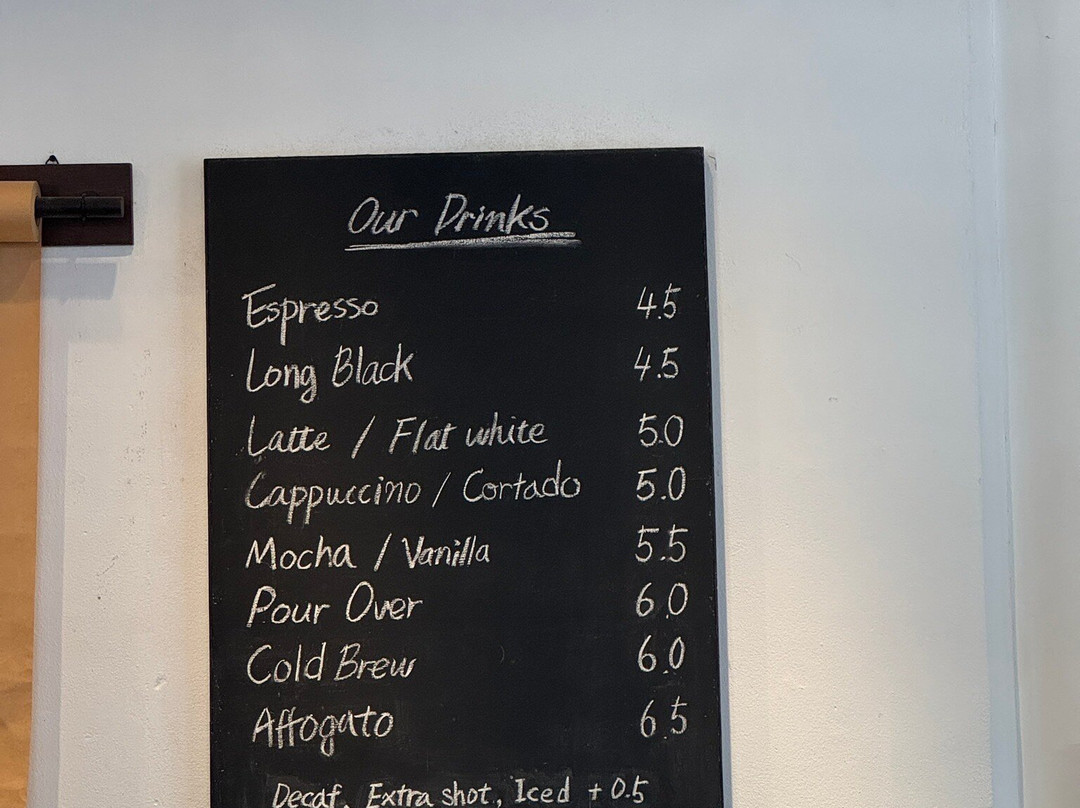 Our Drinks
Espresso 4.5
Long Black 4.5
Latte / Flat white 5.0
Cappuccino / Cortado 5.0
Mocha / Vanilla 5.5
Pour Over 6.0
Cold Brew 6.0
Affogato 6.5
Decaf, Extra shot, Iced + 0.5